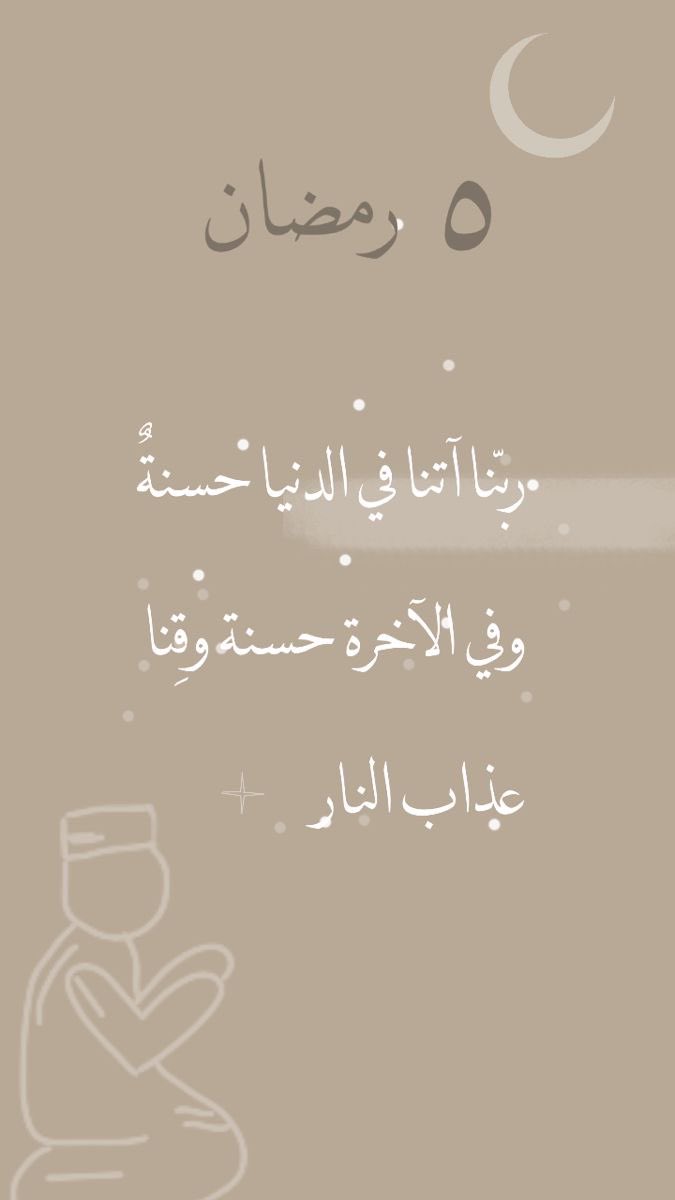 ٥ رمضان
ربّنا آتنا في الدنيا حسنةٌ
وفي الآخرة حسنة وقِنا
عذاب النار